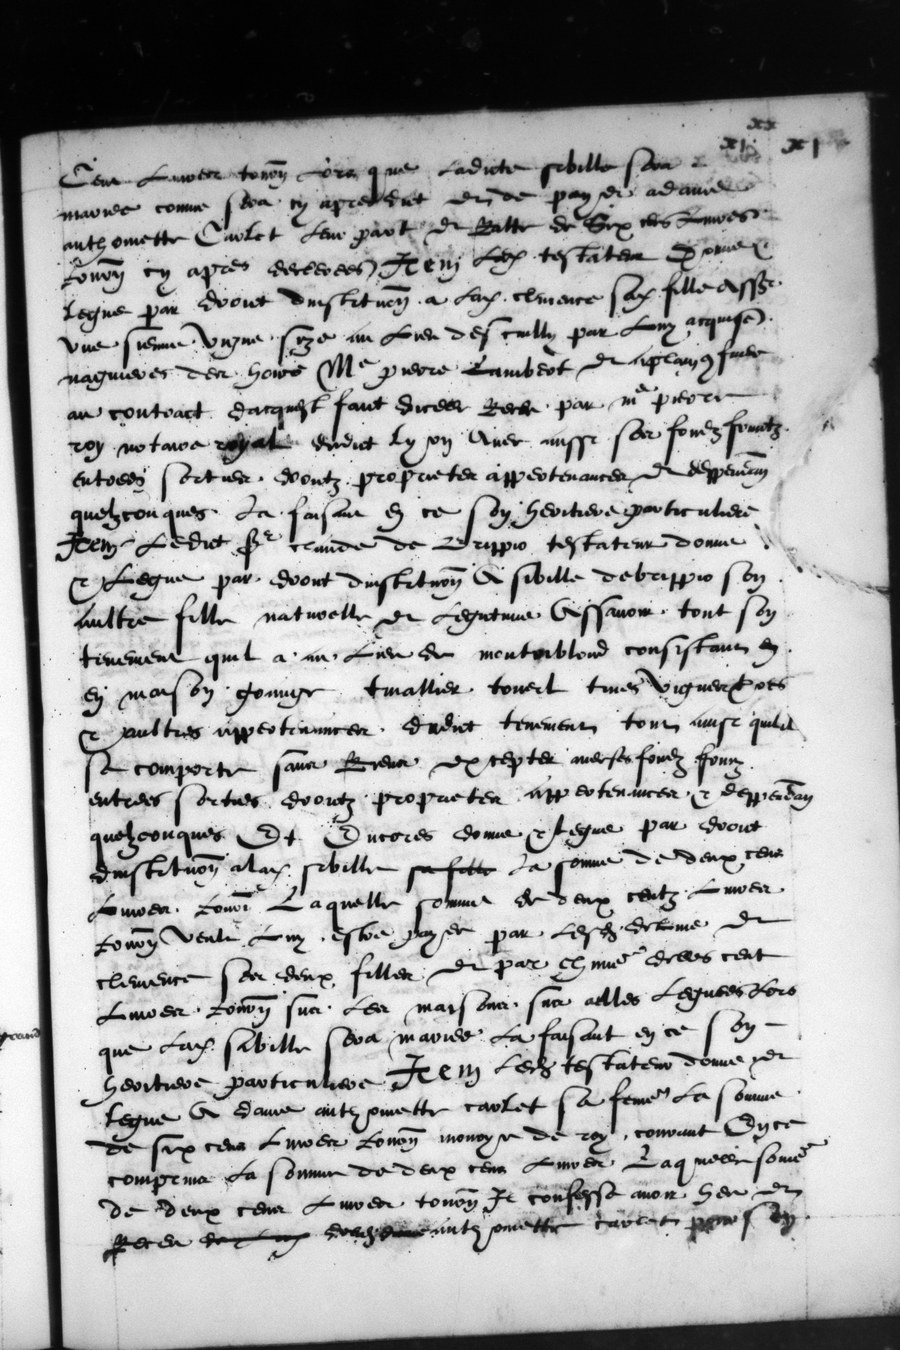 xx
xi xi
Cens livres tourn lors que ladicte sibille sera
mariee comme sera cy apres dict et de payer a dame
anthoinette Carlet leur part et ratte de six cens livres
tourn cy apres declerees Item led testateur donne et
legue par droict dinstitution a lad clemence sad fille assr
une sienne vigne size au lieu descully par luy acquise
naguieres des hoirs Me pierre Lambert et aplain confinee
au contract dacquest faict dicelle receu par me pierre
roy notaire royal dudict lyon avec aussi ses fondz frountz
entrees sorties droictz proprietes appertenances et deppendan
quelzconques La faisant en ce son heritiere particuliere
Item Ledict sr claude de Brippio testateur donne
et Legue par droict dinstitution a sibille debrippio son
aultre fille naturelle et legitime Assavoir tout son
tenement quil a au lieu de montribloud consistant en
en maison grange tinallier terres vignes prés
et aultres appertenances dudict tenement tout ainsi quil
se comporte sans rien excepter avec ses fondz frontz
entrees sorties droictz proprietes appertenances et deppendan
quelzconques Et Encores donne et legue par droict
dinstitution a lad sibille sa fille La somme de deux cens
livres tourn Laquelle somme de deux centz livres
tourn veult luy estre payee par lesd et
clemence ses deux filles et par chune delles cent
livres tourn sur les maisons sur a elles leguees lors
que lad sibille sera mariee La faisant en ce son
heritiere particuliere Item led testateur donne et
legue a dame anthoinette carlet sa feme La somme
de six cens livres tourn monoye de roy courant En ce
comprins la somme de deux cens livres Laquelle some
de deux cens livres tourn Il confesse avoir heu et
receu de lad dame anthoinette carlet pour son